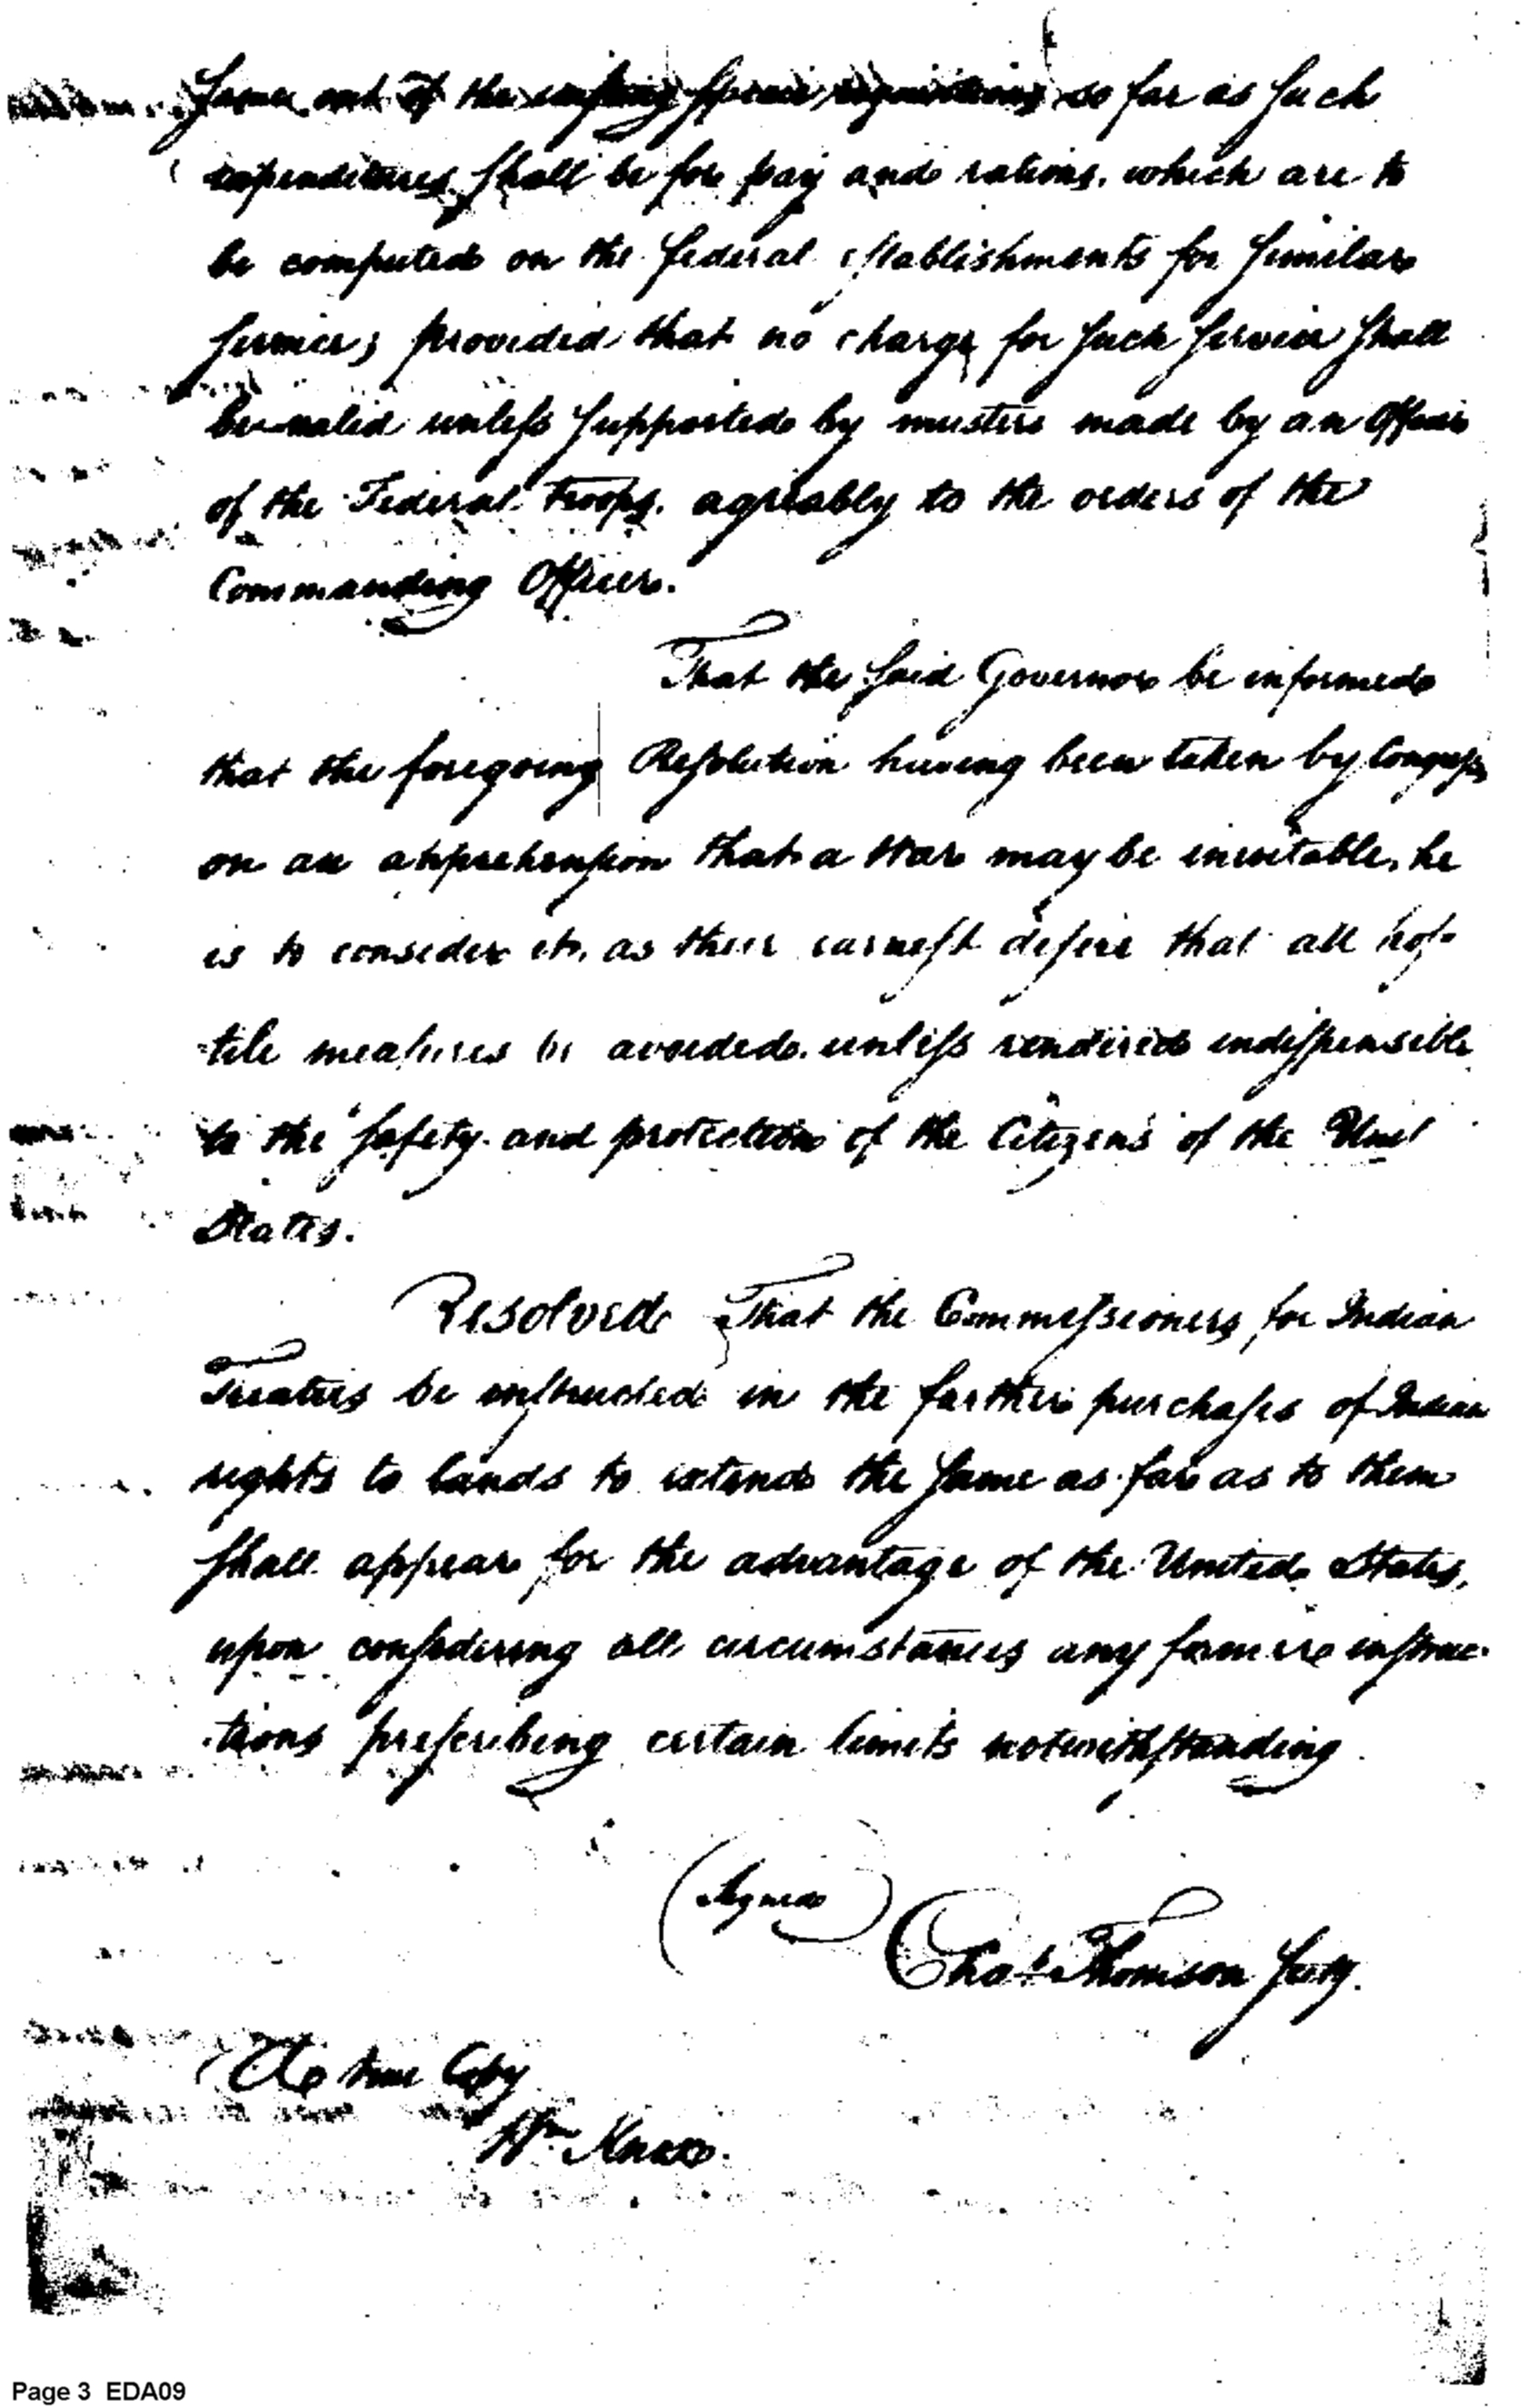 same out of the ensuing specie requisitions so far as such
expenditures shall be for pay and rations, which are to
be computed on the federal establishments for similar
services; provided that no charge for such service shall
be valid unless supported by musters made by an Officer
of the Federal troops, agreably to the orders of the
Commanding Officer.
That the said Governor be informed
that the foregoing Resolution having been taken by Congress
on an apprehension that a War may be inevitable, he
is to consider it, as their earnest desire that all hos-
-tile measures be avoided, unless rendered indispensible
to the safety and protection of the Citizens of the Und
States.
Resolved That the Commissioners for Indian
Treaties be instructed in the farther purchases of Indian
rights to lands to extend the same as far as to them
shall appear for the advantage of the United States,
upon considering all circumstances any former instruc-
-tions prescribing certain limits notwithstanding
(Signed)
Chas Thomson Secy.
A true Copy
Wm Knox.
Page 3 EDA09